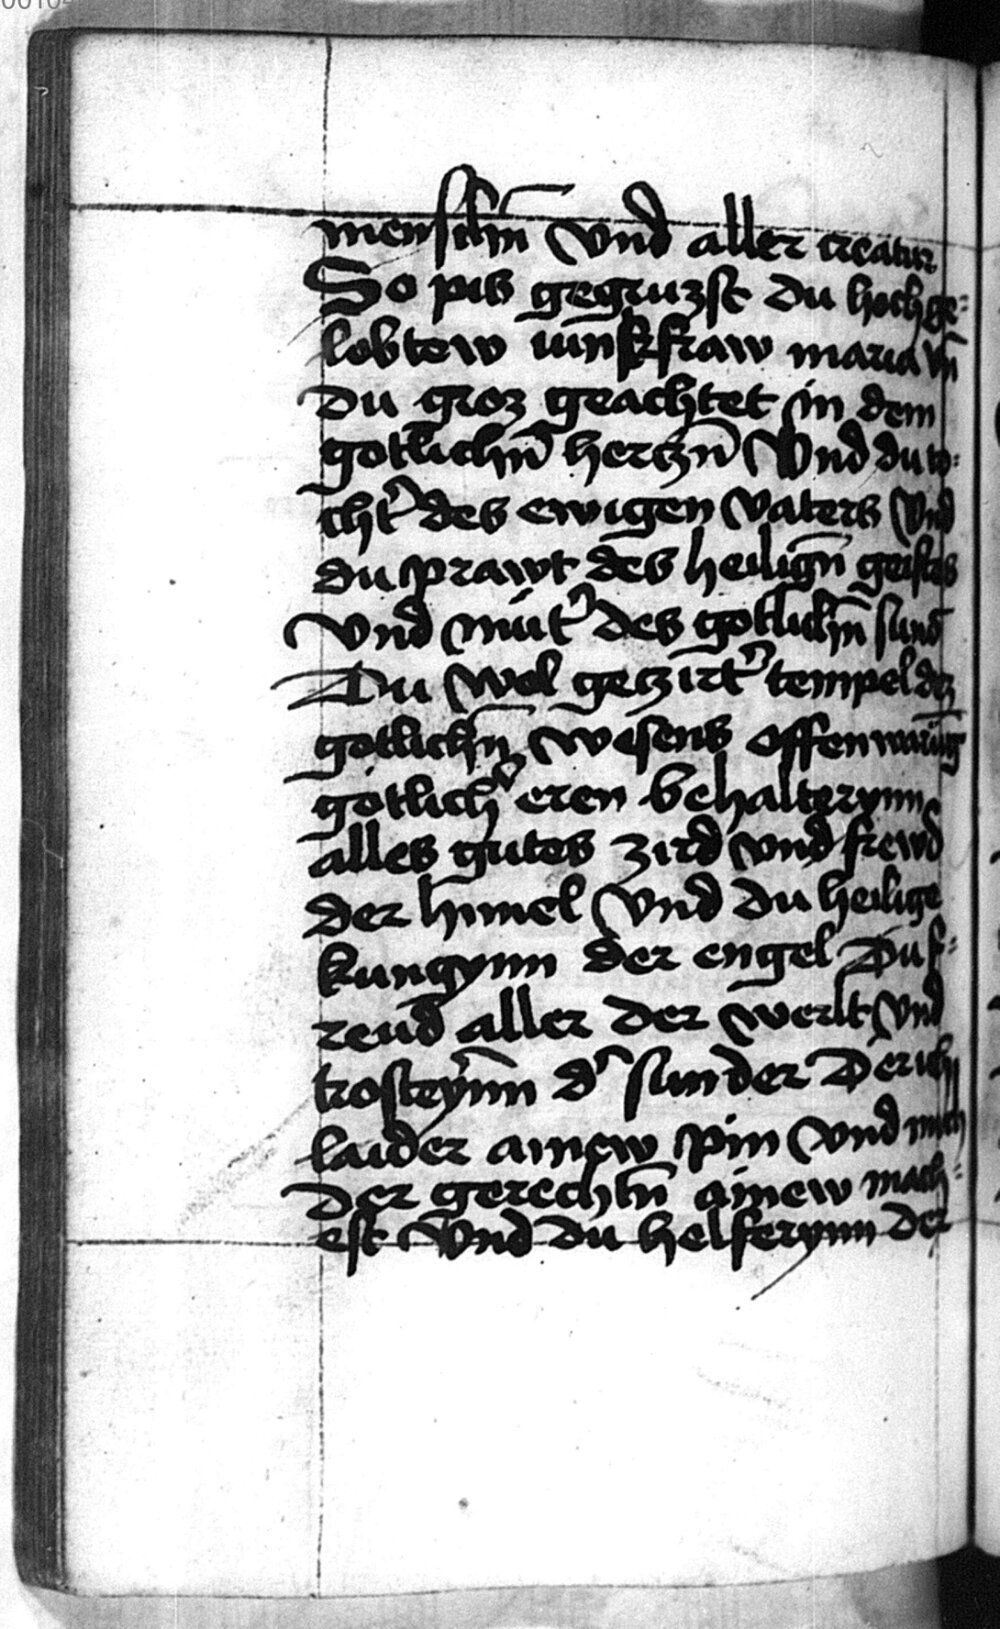 menschn̄ vnd aller creatur
So pis gegruzst du hochge⸗
lobtew iunkfraw maria vn̄
du groz geachtet in dem
gotlichn̄ hertzn̄ Vnd du to⸗
cht' des ewigen vaters vnd
du prawt des heilign̄ geistes
vnd mut' des gotlichn̄ suns
Du wol geczirt' tempel dez
gotlichn̄ wesens offenwarūg
gotlich' eren behalterynn
alles gutes zird vnd frewd
der himel vnd du heilige
kungynn der engel Du f⸗
rewd aller der werlt vnd
trosterynn d' sunder Der ich
laider ainew pin vnd mich
der gerechtn̄ ainew mach⸗
est Vnd du helferynn der